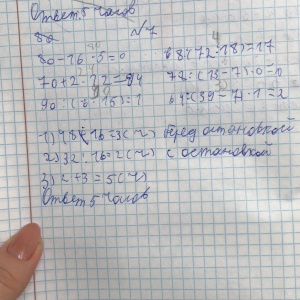 Ответ 5 часов
№7
80-16·5=0
68:(72:18)=17
70+2·12=94
90:(6·15)=1
1) 48:16=3(ч) перед остановкой
2) 32:16=2(ч) с остановкой
3) 2+3=5(ч)
Ответ 5 часов